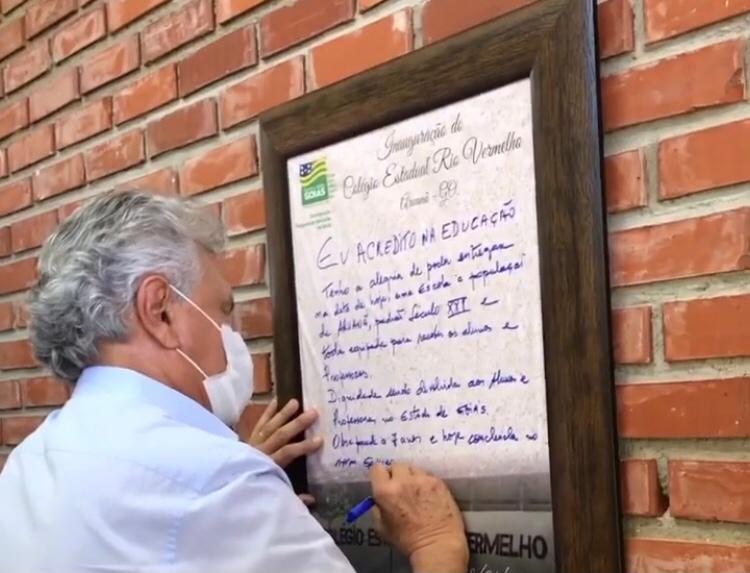 Inauguração do
Colégio Estadual Rio Vermelho
Aruanã - GO.
GOIÁS
EU ACREDITO NA EDUCAÇÃO
Tenho a alegria de poder entregar
na data de hoje, uma Escola a população
de Aruanã, padrão Século XXI e
toda equipada para receber os alunos e
Professores.
Dignidade sendo devolvida aos Alunos e
Professores no Estado de Goiás.
Obra parada a 7 anos e hoje concluída no
nosso
COLÉGIO ES VERMELHO